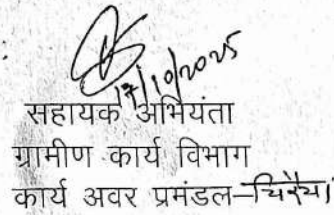 17/10/2025
सहायक अभियंता
ग्रामीण कार्य विभाग
कार्य अवर प्रमंडल-चिरैया।